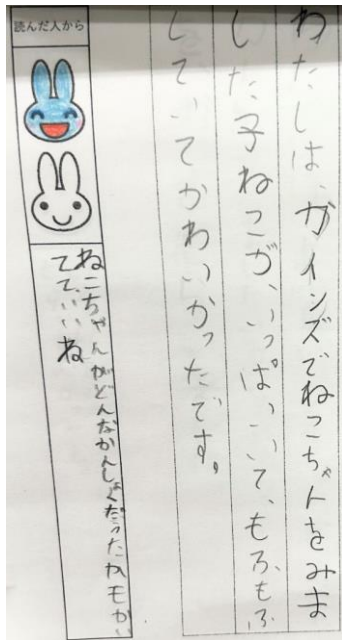 わたしは、カインズでねこちゃんをみま
した。子ねこが、いっぱいいて、もふもふ
していてかわいかったです。
読んだ人から
ねこちゃんがどんなかんしょくだったかもかい
てて、いいね